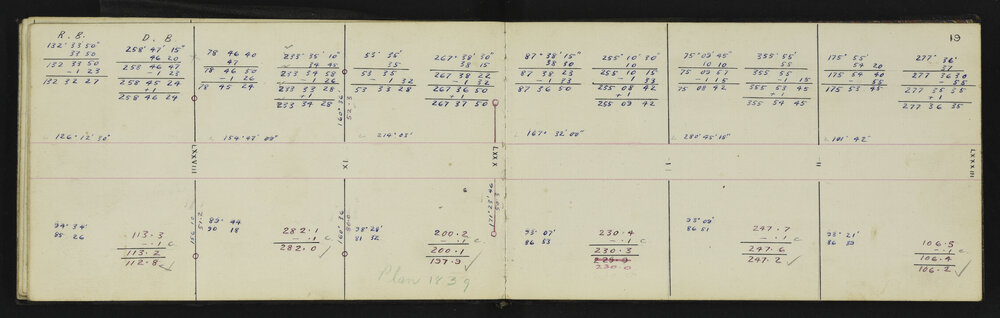 R. B.
D. B
132° 33' 50"
33 50
132 33 50
-1 23
132 32 27
258° 47' 15"
46 20
258 46 47
-1 23
258 45 24
+1
258 46 24
126° 12' 30"
78 46 40
47
78 46 50
-1 26
78 45 24
233° 35' 10"
34 45
233 34 58
-1 30
233 33 28
+1
233 34 28
154° 47' 00"
53° 35'
35
53 35
-1 32
53 33 28
267° 38' 30"
38 15
267 38 22
-1 32
267 36 50
+1
267 37 50
214° 03'
87° 38' 15"
38 30
87 38 23
-1 33
87 36 50
255° 10' 30
10
255 10 15
-1 33
255 08 42
+1
255 09 42
167° 32' 00"
75° 09' 45"
10 10
75 09 57
-1 15
75 08 42
355° 55'
55
355 55
-1 15
355 53 45
+1
355 54 45
280° 45' 15"
175° 55'
54 20
175 54 40
-55
175 53 45
277° 36'
37
277 36 30
-55
277 35 35
+1
277 36 35
101° 42"
19
LXXVIII
IX
LXXX
I
II
LXXXIII
160° 36'
52.5
94° 34'
85 26
113.3
-.1 c
113.2
112.8
51.2
89° 44
90 18
282.1
-.1 c
282.0
160° 36
80.0
98° 28'
81 32
200.2
-.1 c
200.1
197.9
117° 23' 46
50.3
93° 07'
86 53
230.4
-.1 c
230.3
230.0
93° 09'
86 51
247.7
-.1 c
247.6
247.2
93° 21'
86 39
106.5
-.1 c
106.4
106.2
Plan 1839